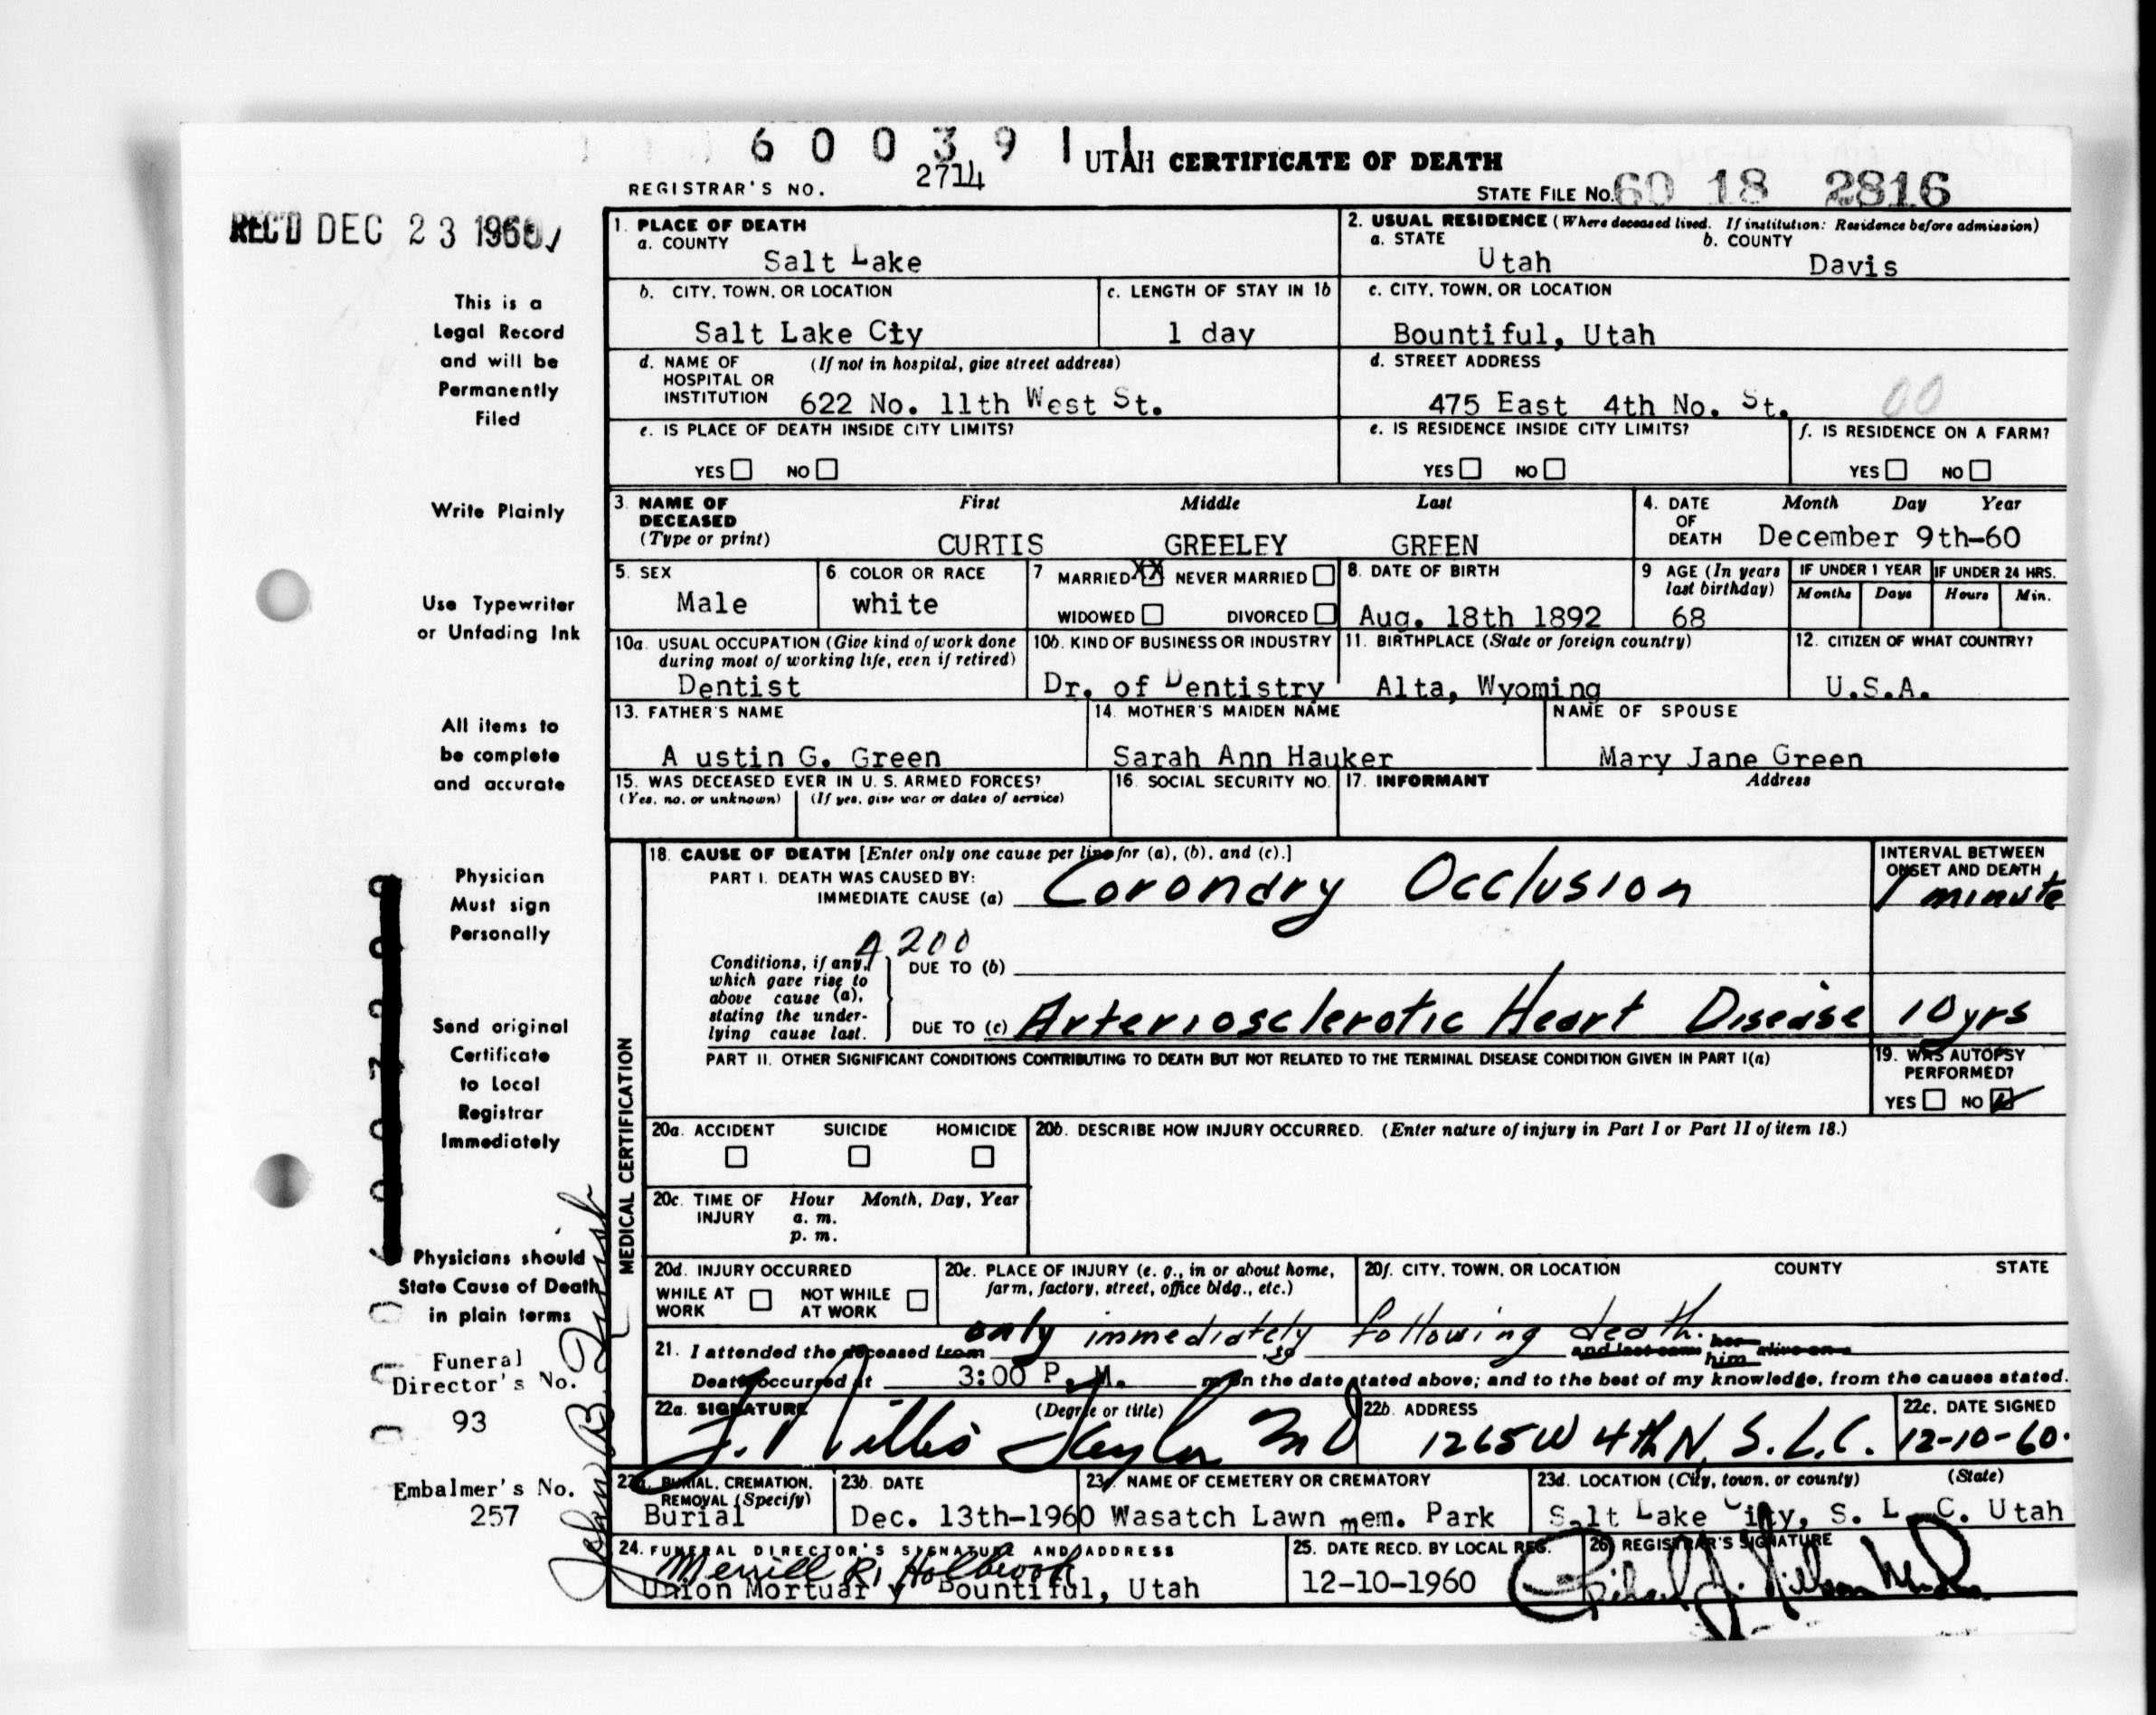 6 0 0 3 9 1 1
UTAH CERTIFICATE OF DEATH
REGISTRAR'S NO. 2714
STATE FILE NO. 60 18 2816
REC'D DEC 23 1960
This is a
Legal Record
and will be
Permanently
Filed
Write Plainly
Use Typewriter
or Unfading Ink
All items to
be complete
and accurate
Physician
Must sign
Personally
Send original
Certificate
to Local
Registrar
Immediately
Physicians should
State Cause of Death
in plain terms
Funeral
Director's No.
93
Embalmer's No.
257
1. PLACE OF DEATH
a. COUNTY
Salt Lake
2. USUAL RESIDENCE (Where deceased lived. If institution: Residence before admission)
a. STATE b. COUNTY
Utah Davis
b. CITY, TOWN, OR LOCATION
Salt Lake Cty
c. LENGTH OF STAY IN 1b
1 day
c. CITY, TOWN, OR LOCATION
Bountiful, Utah
d. NAME OF (If not in hospital, give street address)
HOSPITAL OR
INSTITUTION 622 No. 11th West St.
d. STREET ADDRESS
475 East 4th No. St. 00
e. IS PLACE OF DEATH INSIDE CITY LIMITS?
YES NO
e. IS RESIDENCE INSIDE CITY LIMITS?
YES NO
f. IS RESIDENCE ON A FARM?
YES NO
3. NAME OF First Middle Last
DECEASED
(Type or print) CURTIS GREELEY GREEN
4. DATE Month Day Year
OF
DEATH December 9th-60
5. SEX
Male
6. COLOR OR RACE
white
7 MARRIED XX NEVER MARRIED
WIDOWED DIVORCED
8. DATE OF BIRTH
Aug. 18th 1892
9 AGE (In years
last birthday)
68
IF UNDER 1 YEAR IF UNDER 24 HRS.
Months Days Hours Min.
10a. USUAL OCCUPATION (Give kind of work done
during most of working life, even if retired)
Dentist
10b. KIND OF BUSINESS OR INDUSTRY
Dr. of Dentistry
11. BIRTHPLACE (State or foreign country)
Alta, Wyoming
12. CITIZEN OF WHAT COUNTRY?
U.S.A.
13. FATHER'S NAME
A ustin G. Green
14. MOTHER'S MAIDEN NAME
Sarah Ann Hauker
NAME OF SPOUSE
Mary Jane Green
15. WAS DECEASED EVER IN U. S. ARMED FORCES?
(Yes, no, or unknown) (If yes, give war or dates of service)
16. SOCIAL SECURITY NO.
17. INFORMANT Address
MEDICAL CERTIFICATION
18. CAUSE OF DEATH [Enter only one cause per line for (a), (b), and (c).]
PART I. DEATH WAS CAUSED BY:
IMMEDIATE CAUSE (a) Coronary Occlusion
INTERVAL BETWEEN
ONSET AND DEATH
1 minute
Conditions, if any,
which gave rise to
above cause (a),
stating the under-
lying cause last.
DUE TO (b)
DUE TO (c) Arteriosclerotic Heart Disease 10 yrs
PART II. OTHER SIGNIFICANT CONDITIONS CONTRIBUTING TO DEATH BUT NOT RELATED TO THE TERMINAL DISEASE CONDITION GIVEN IN PART I(a)
19. WAS AUTOPSY
PERFORMED?
YES NO
20a. ACCIDENT SUICIDE HOMICIDE
20b. DESCRIBE HOW INJURY OCCURRED. (Enter nature of injury in Part I or Part II of item 18.)
20c. TIME OF Hour Month, Day, Year
INJURY a. m.
p. m.
20d. INJURY OCCURRED
WHILE AT WORK NOT WHILE AT WORK
20e. PLACE OF INJURY (e. g., in or about home,
farm, factory, street, office bldg., etc.)
20f. CITY, TOWN, OR LOCATION COUNTY STATE
only immediately following death.
21. I attended the deceased from to and last saw her him alive on
Death occurred at 3:00 P. M. m on the date stated above; and to the best of my knowledge, from the causes stated.
22a. SIGNATURE (Degree or title)
MD
22b. ADDRESS
1265 W 4th N, S.L.C.
22c. DATE SIGNED
12-10-60.
23a. BURIAL, CREMATION,
REMOVAL (Specify)
Burial
23b. DATE
Dec. 13th-1960
23c. NAME OF CEMETERY OR CREMATORY
Wasatch Lawn mem. Park
23d. LOCATION (City, town, or county) (State)
Salt Lake City, S. L. C. Utah
24. FUNERAL DIRECTOR'S SIGNATURE AND ADDRESS
Merrill R. Holbrook
Union Mortuar y Bountiful, Utah
25. DATE RECD. BY LOCAL REG.
12-10-1960
26. REGISTRAR'S SIGNATURE